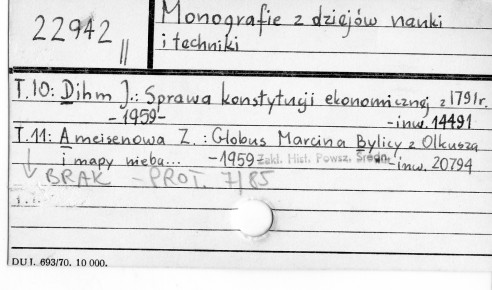 22942 II
Monografie z dziejów nauki
i techniki
T.10: Dihm J.: Sprawa konstytucji ekonomicznej z 1791r.
-1959-
-inw. 14491
T.11: Ameisenowa Z.: Globus Marcina Bylicy z Olkusza
i mapy nieba... -1959 Zakł. Hist. Powsz. Średn. -inw. 20794
↓ BRAK - PROT. 7/85
DU J. 693/70. 10 000.